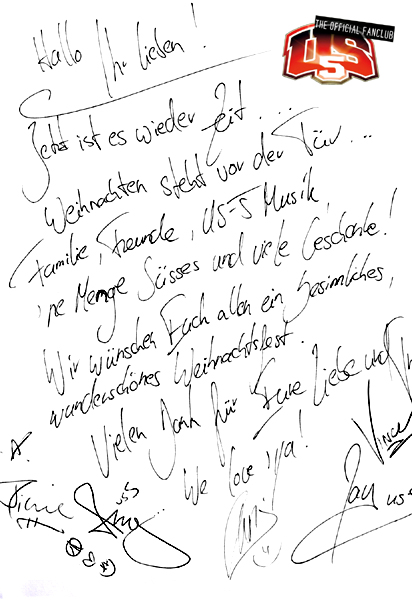 THE OFFICIAL FANCLUB
US5
Hallo Ihr Lieben!
Jetzt ist es wieder Zeit....
Weihnachten steht vor der Tür...
Familie, Freunde, US-5 Musik,
'ne Menge Süsses und viele Geschenke!
Wir wünschen Euch allen ein besinnliches,
wunderschönes Weihnachtsfest.
Vielen Dank für Eure Liebe und
We love ya!
Vince
Richie
Chris
Jay